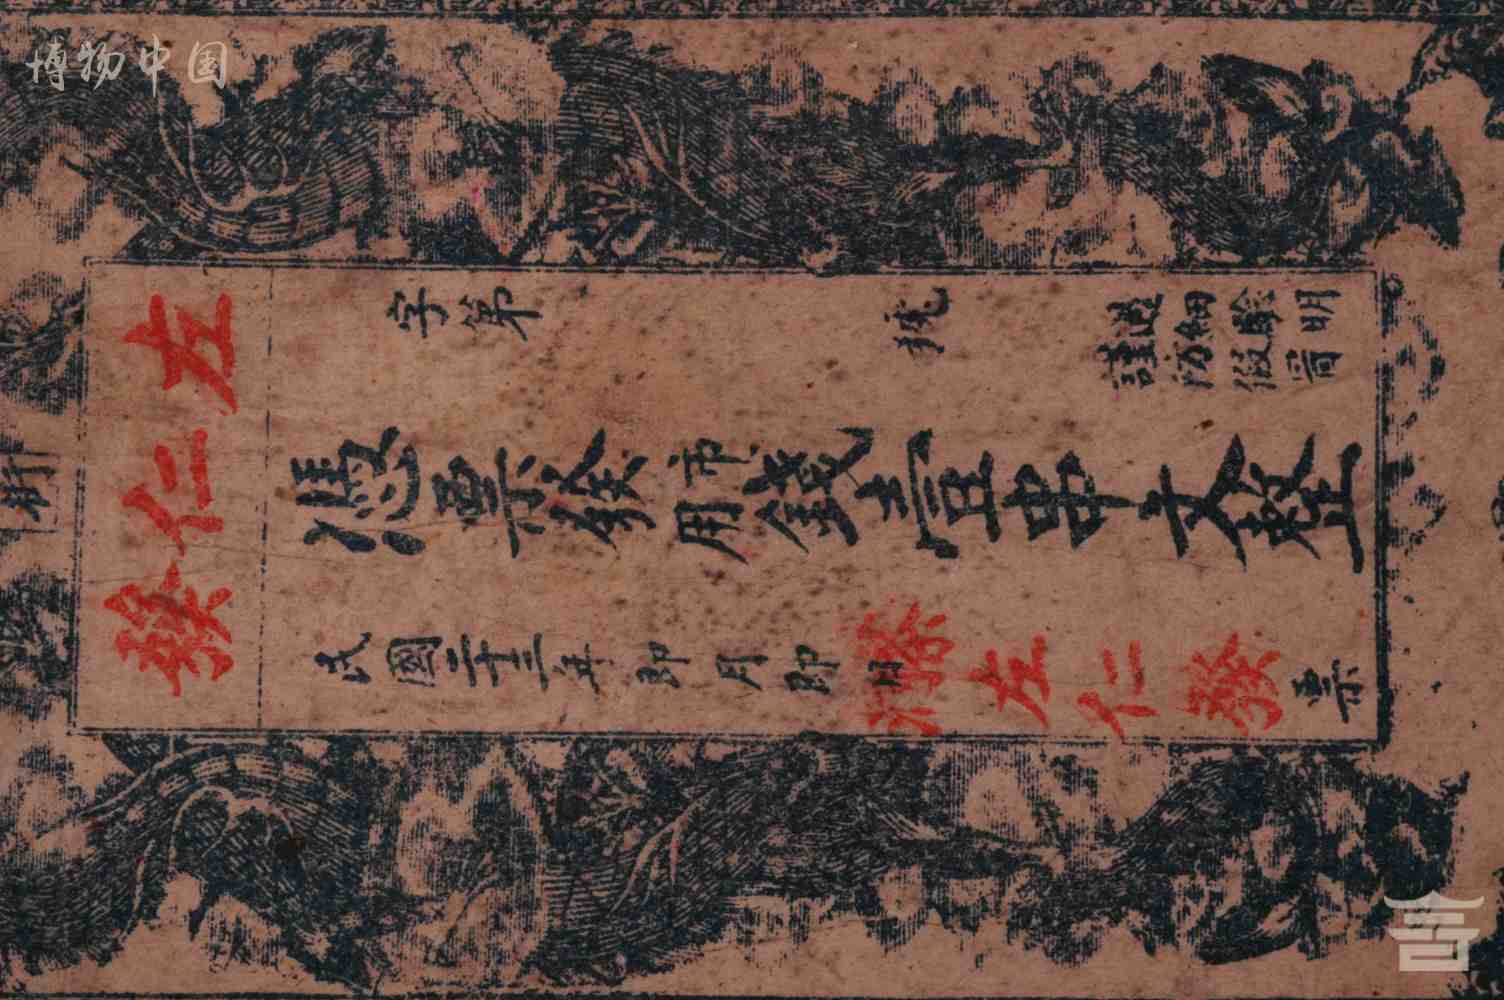 博物中国
左仁發
字第 號
過細驗明
謹防假冒
憑票發市用錢壹串文整
民國二十三年即月即日 左仁發票